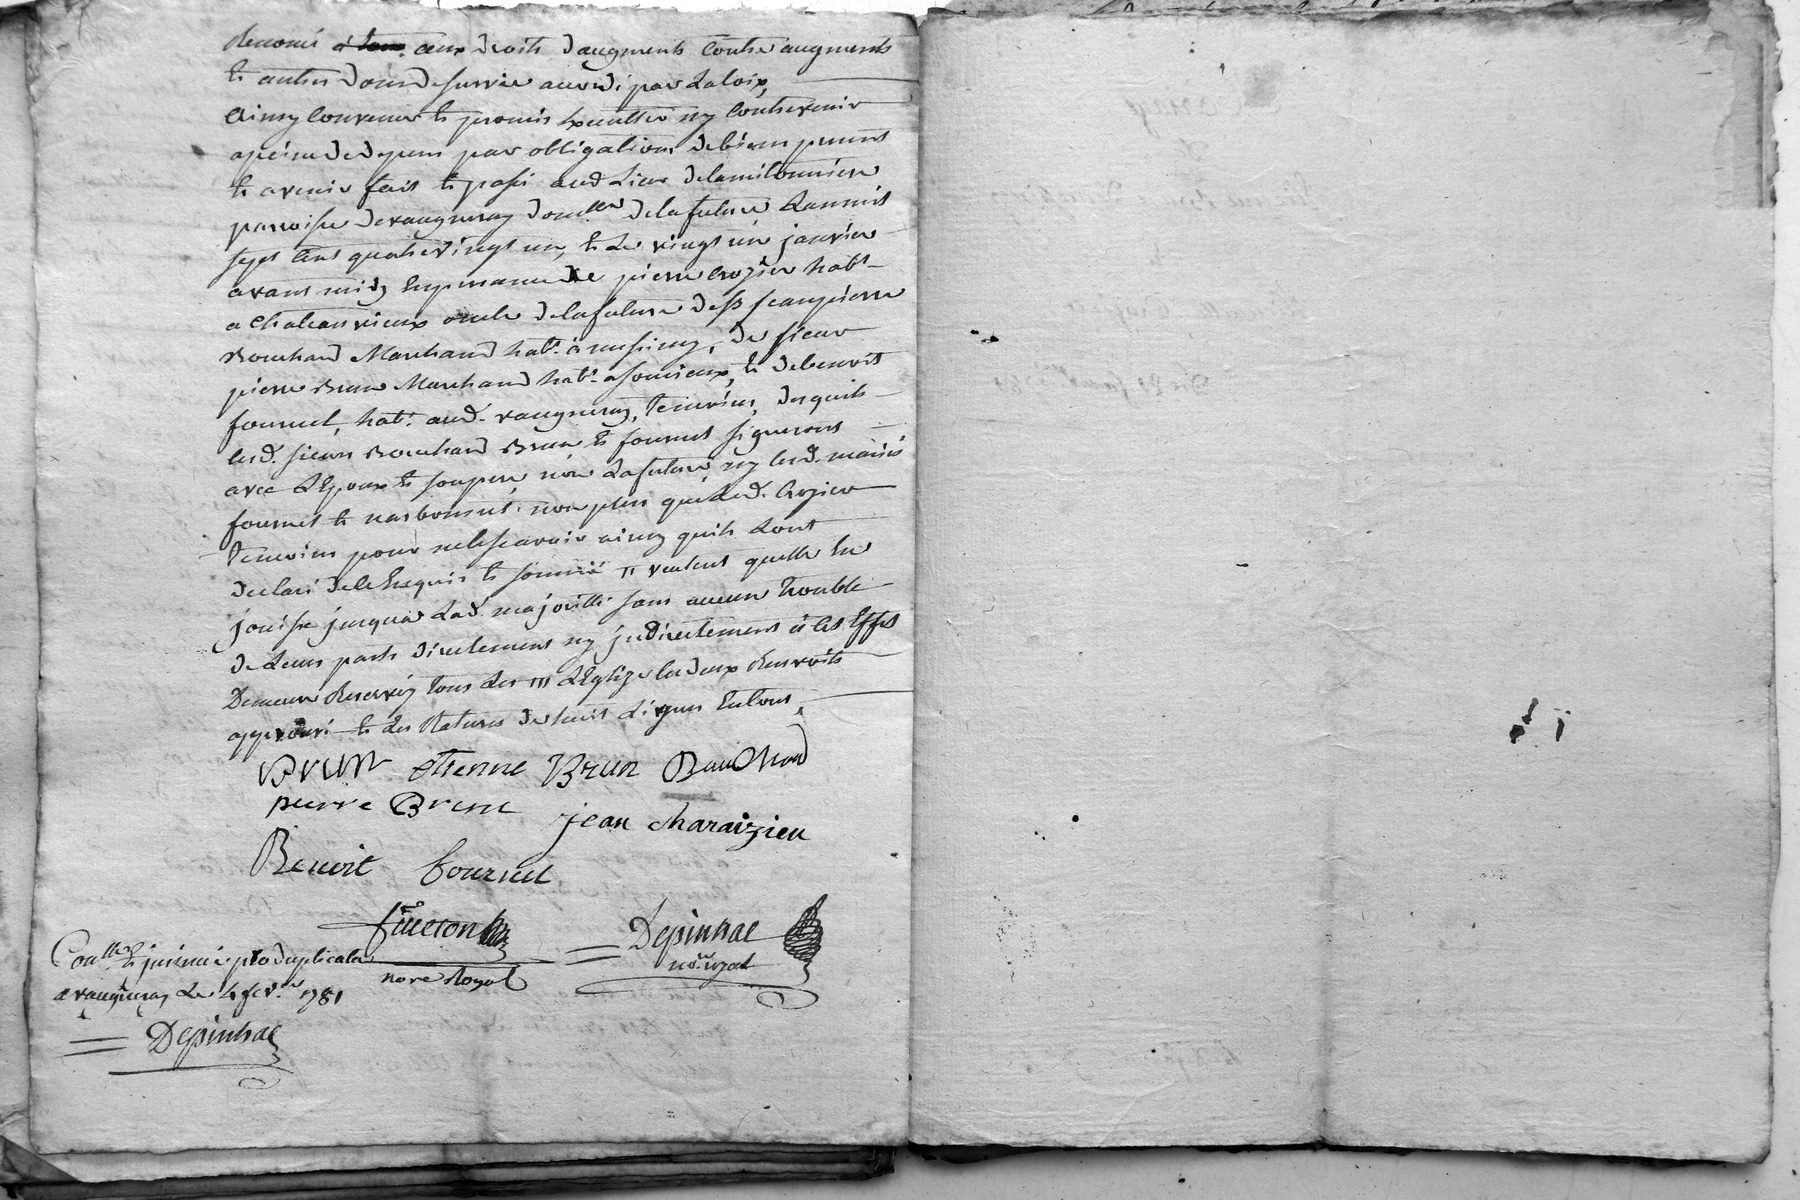 Renoncé aux droits d'augments contre augments
et autres dons de survie acordé par la loix,
ainsy convenu et promis executter ny contrevenir
apeine de depens par obligations de biens presents
et avenir fait et passé aud. lieu de la milonniere
parroisse de vaugneray de la future L'an mil
sept cent quatre vingt un, et le vingt un janvier
avant midy En presence de pierre Crozier habt.
a Chateauvieux oncle de la future de sr. jean pierre
Bouchard Marchand habt. à messimy, de sieur
pierre Brun Marchand habt. a soucieux, et de benoit
fournel, habt. aud. vaugneray, temoins, desquels
lesd. sieurs Bouchard Brun et fournel signeront
avec L'Epoux et son pere, non La future ny lesd. mariés
fournel et non plus que Led. Crozier
temoins pour ne le scavoir ainsy quils L'ont
declaré de ce Enquis et sommé II veulent quelle En
jouisse jusqua Lad. majorité sans aucun trouble
de Leurs parts directement ny indirectement à ces Effets
Demeure Reservés tous Les III L'Eglize les deux Renvoits
approuvé et les Ratures de huit Lignes Entout,
Brun etienne Brun Bouchard
pierre Brun jean charaizieu
Benoit fournel
Gueton Depinhac
nore Royal no.re royal
Conllé. et insinué pro duplicata
a vaugneray Le 4 fevr. 1781
Depinhac